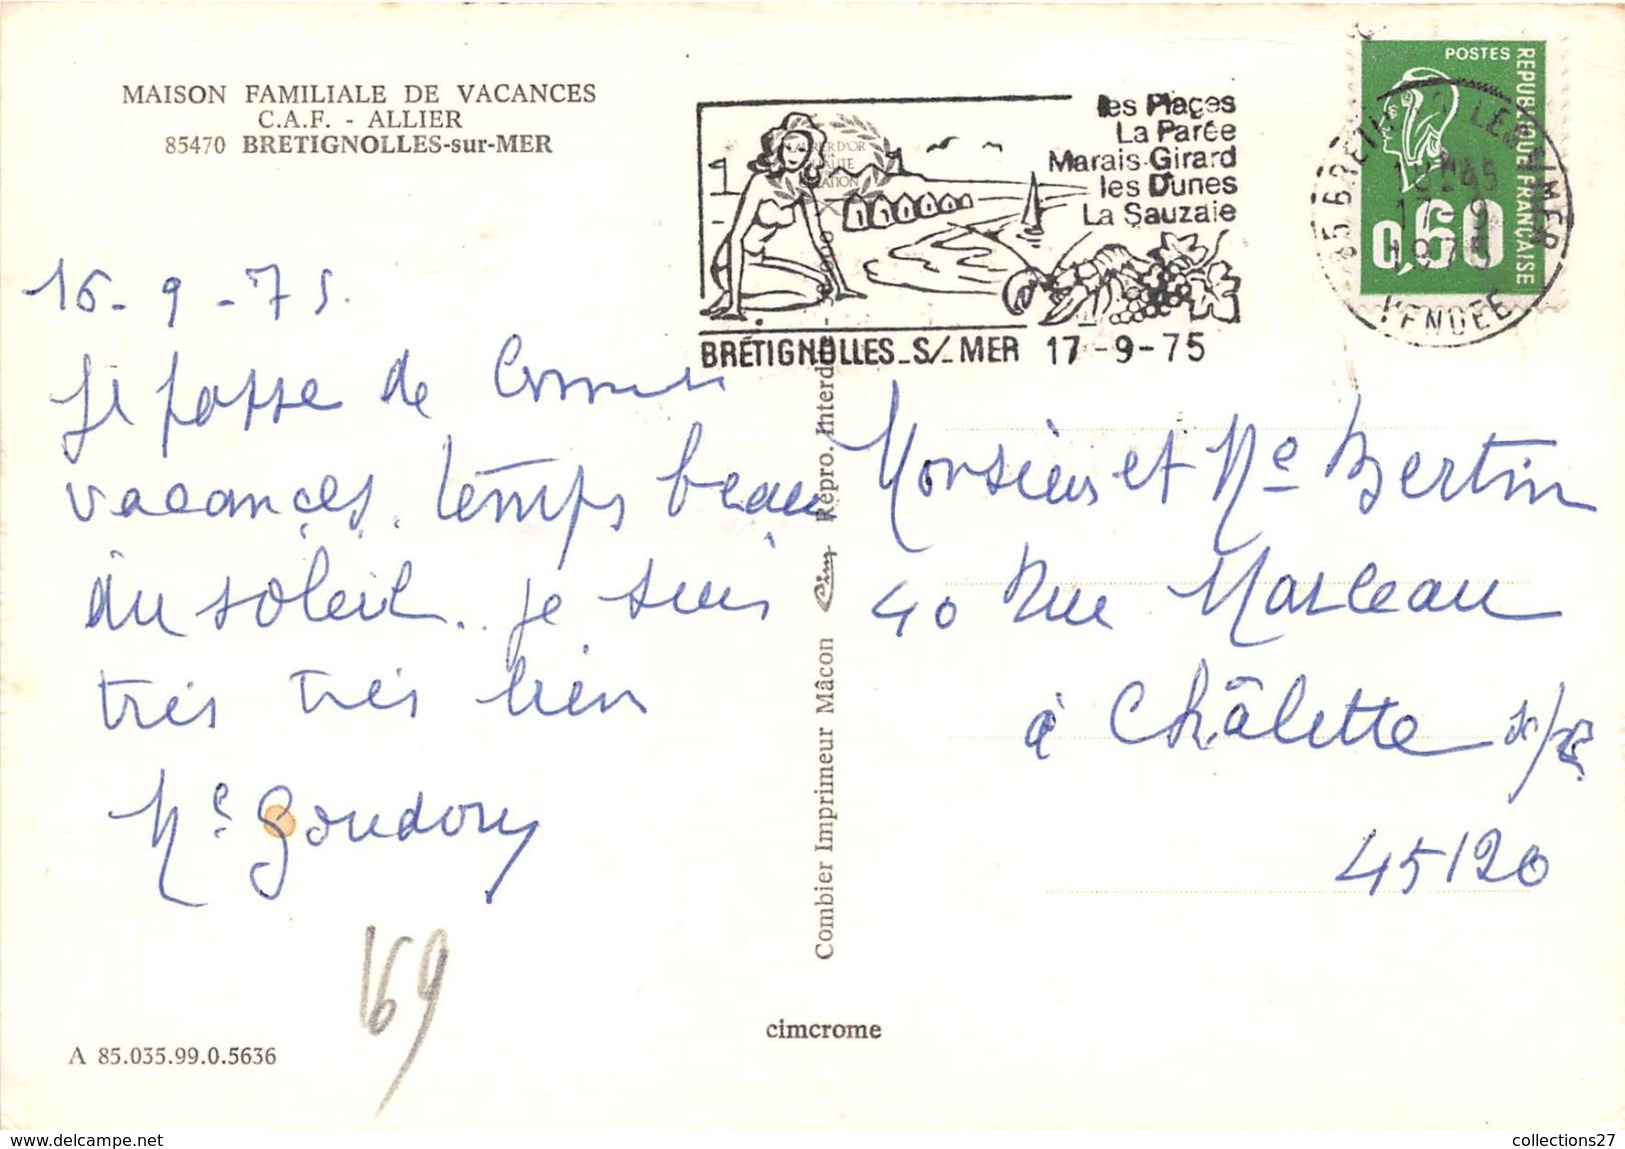 MAISON FAMILIALE DE VACANCES
C.A.F. - ALLIER
85470 BRETIGNOLLES-sur-MER
les Plages
La Parée
Marais Girard
les Dunes
La Sauzaie
BRÉTIGNOLLES_S/_MER 17-9-75
POSTES
REPUBLIQUE FRANÇAISE
0,60
17-9
1975
VENDEE
16-9-75.
Je passe de bonnes
vacances. temps beau
du soleil. je suis
très très bien
Me Goudory
169
A 85.035.99.0.5636
Combier Imprimeur Mâcon Cim Repro. Interdite
cimcrome
Monsieur et Me Bertin
40 Rue Marceau
à Châlette s/
45120
www.delcampe.net
collections27